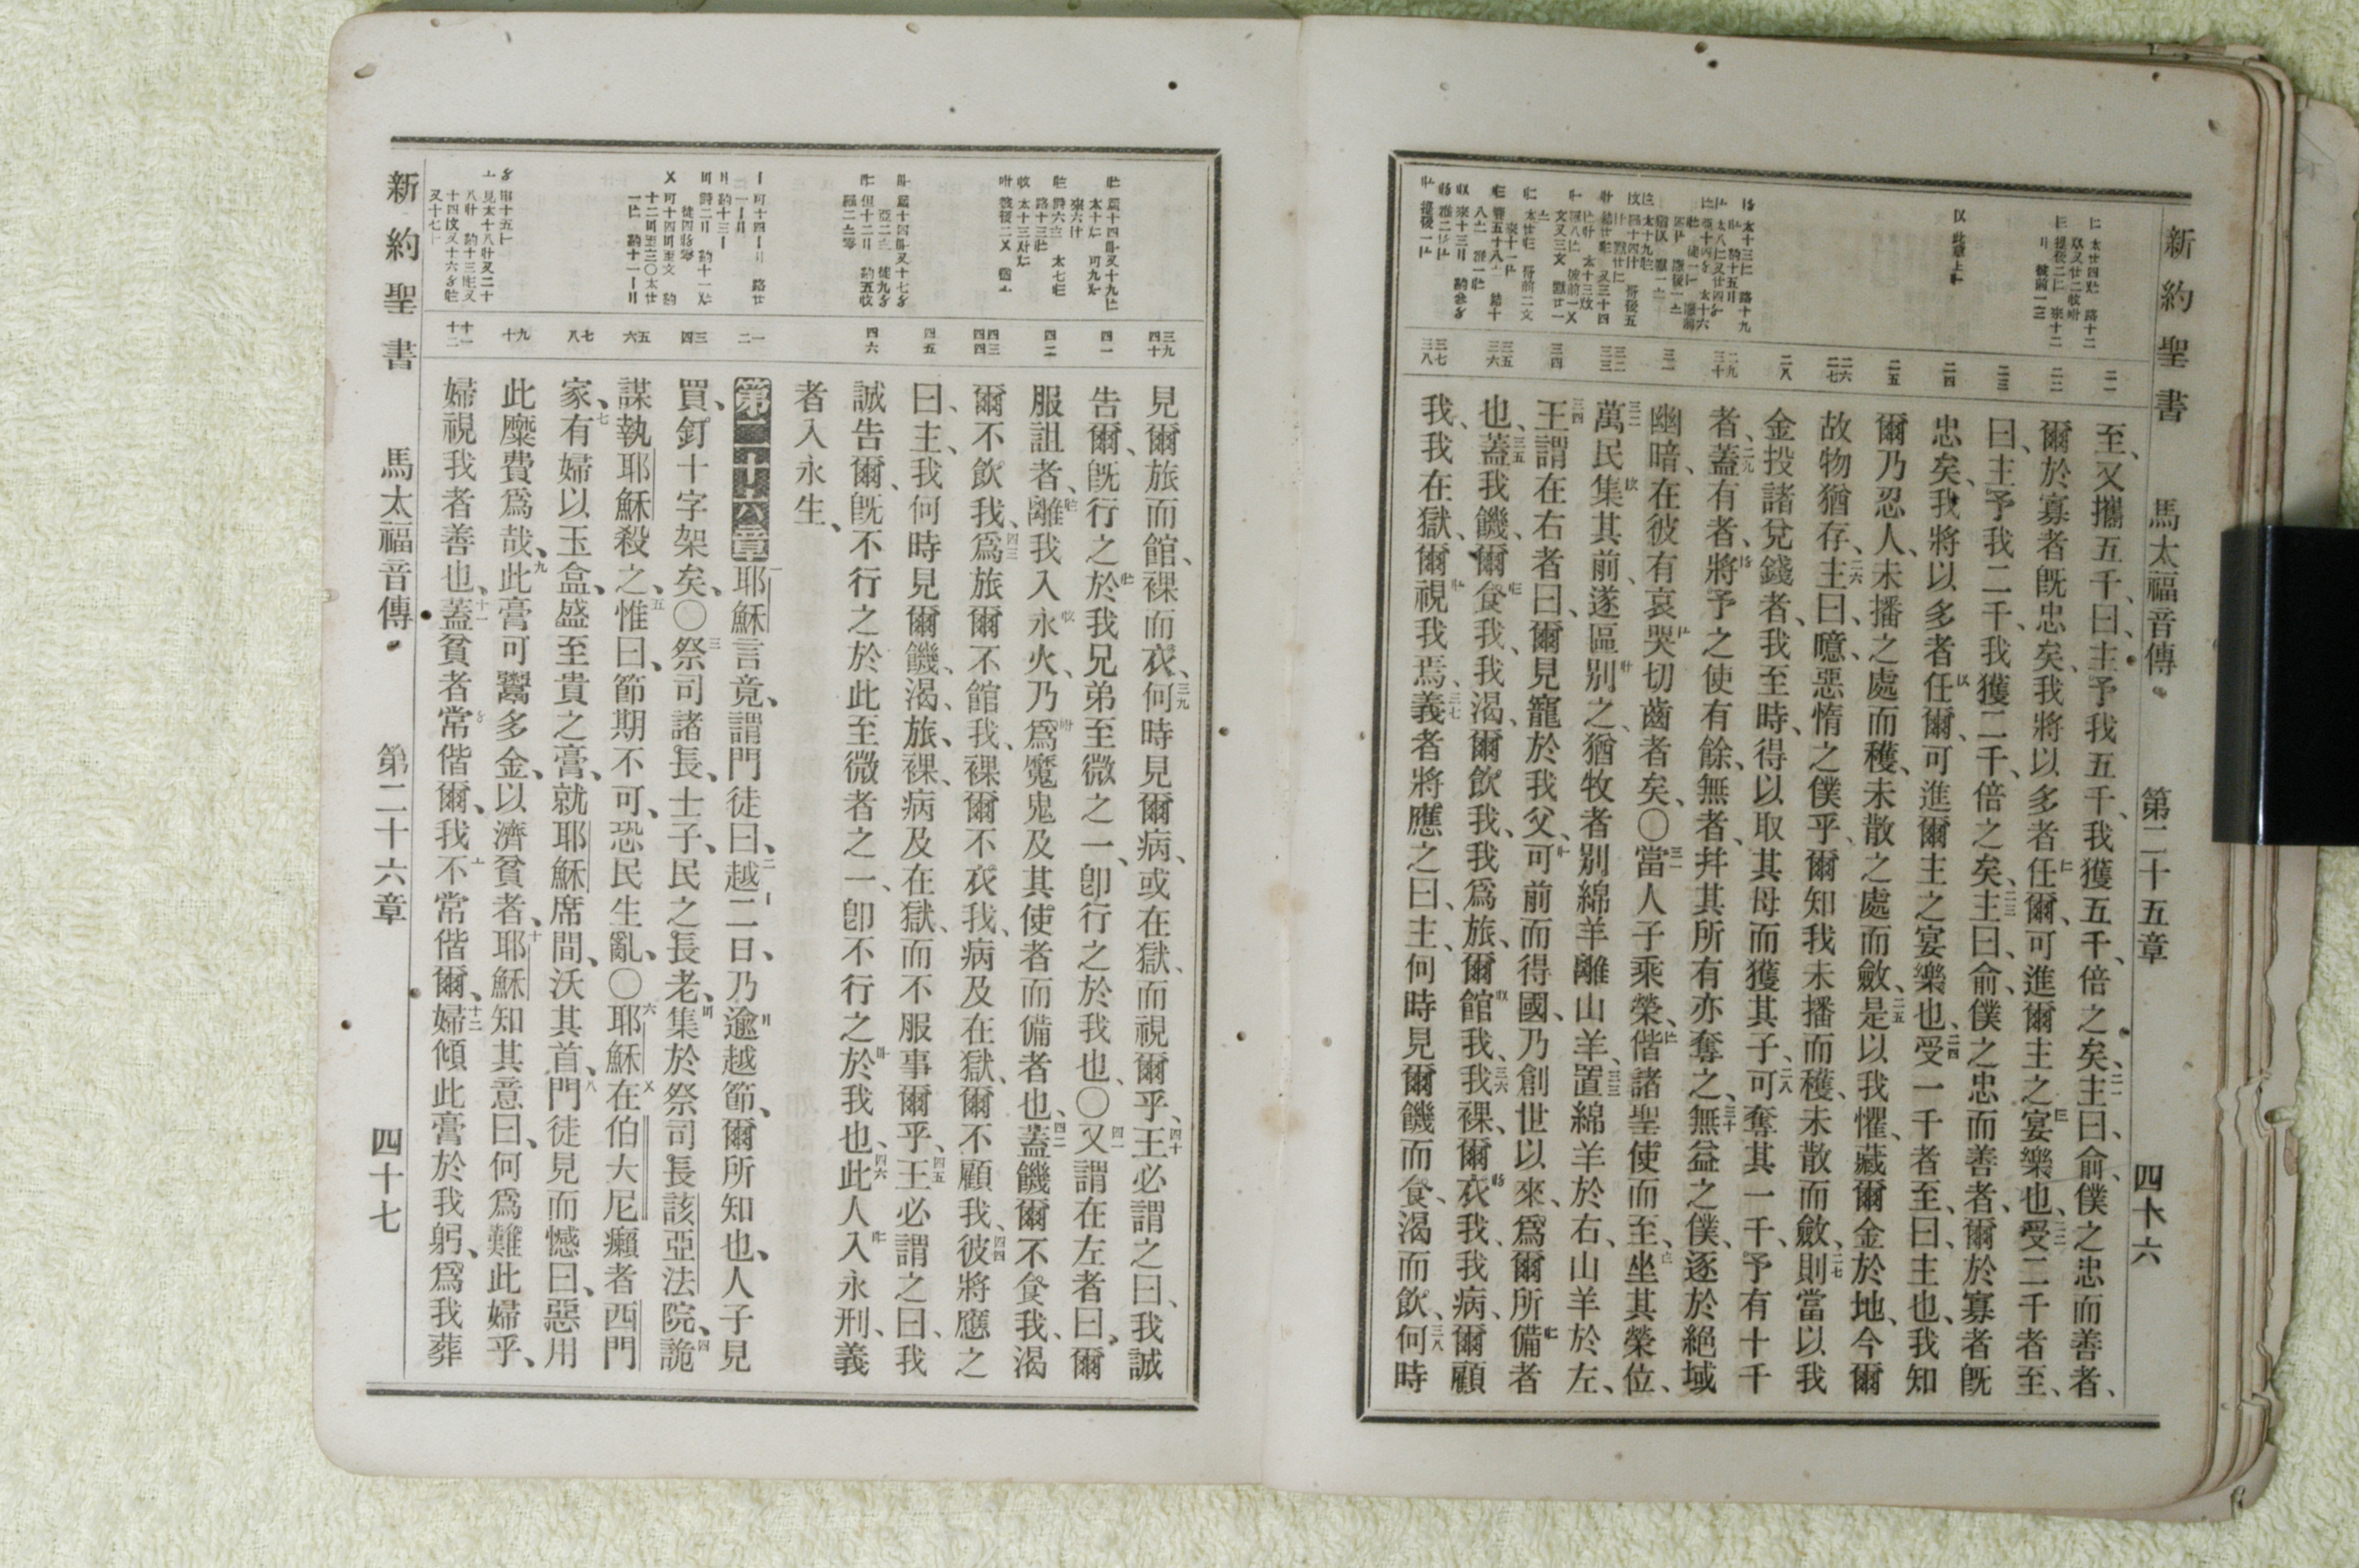 新約聖書 馬太福音傳 第二十五章 四十六
至、又攜五千、曰、主予我五千、我獲五千、倍之矣、主曰、俞、僕之忠而善者、
爾於寡者既忠矣、我將以多者任爾、可進爾主之宴樂也、受二千者至、
曰、主予我二千、我獲二千、倍之矣、主曰、俞、僕之忠而善者、爾於寡者既
忠矣、我將以多者任爾、可進爾主之宴樂也、受一千者至、曰、主也、我知
爾乃忍人、未播之處而穫、未散之處而斂、是以我懼、藏爾金於地、今爾
故物猶存、主曰、噫、惡惰之僕乎、爾知我未播而穫、未散而斂、則當以我
金投諸兌錢者、我至時、得以取其母而獲其子、可奪其一千、予有十千
者、蓋有者、將予之使有餘、無者、幷其所有亦奪之、無益之僕、逐於絕域
幽暗、在彼有哀哭切齒者矣、〇當人子乘榮、偕諸聖使而至、坐其榮位、
萬民集其前、遂區別之、猶牧者別綿羊離山羊、置綿羊於右、山羊於左、
王謂在右者曰、爾見寵於我父、可前而得國、乃創世以來、爲爾所備者
也、蓋我饑、爾食我、我渴、爾飲我、我爲旅、爾館我、我裸、爾衣我、我病、爾顧
我、我在獄、爾視我焉、義者將應之曰、主、何時見爾饑而食、渴而飲、何時
見爾旅而館、裸而衣、何時見爾病、或在獄、而視爾乎、王必謂之曰、我誠
告爾、旣行之於我兄弟至微之一、卽行之於我也、〇又謂在左者曰、爾
服詛者、離我入永火、乃爲魔鬼及其使者而備者也、蓋饑爾不食我、渴
爾不飲我、爲旅爾不館我、裸爾不衣我、病及在獄、爾不顧我、彼將應之
曰、主、我何時見爾饑、渴、旅、裸、病及在獄、而不服事爾乎、王必謂之曰、我
誠告爾、旣不行之於此至微者之一、卽不行之於我也、此人入永刑、義
者入永生、
第二十六章 耶穌言竟、謂門徒曰、越二日、乃逾越節、爾所知也、人子見
買、釘十字架矣、〇祭司諸長、士子、民之長老、集於祭司長該亞法院、詭
謀執耶穌殺之、惟曰、節期不可、恐民生亂、〇耶穌在伯大尼癩者西門
家、有婦以玉盒、盛至貴之膏、就耶穌席間、沃其首、門徒見而憾曰、惡用
此糜費爲哉、此膏可鬻多金、以濟貧者、耶穌知其意曰、何爲難此婦乎、
婦視我者善也、蓋貧者常偕爾、我不常偕爾、婦傾此膏於我躬、爲我葬
新約聖書 馬太福音傳 第二十六章 四十七